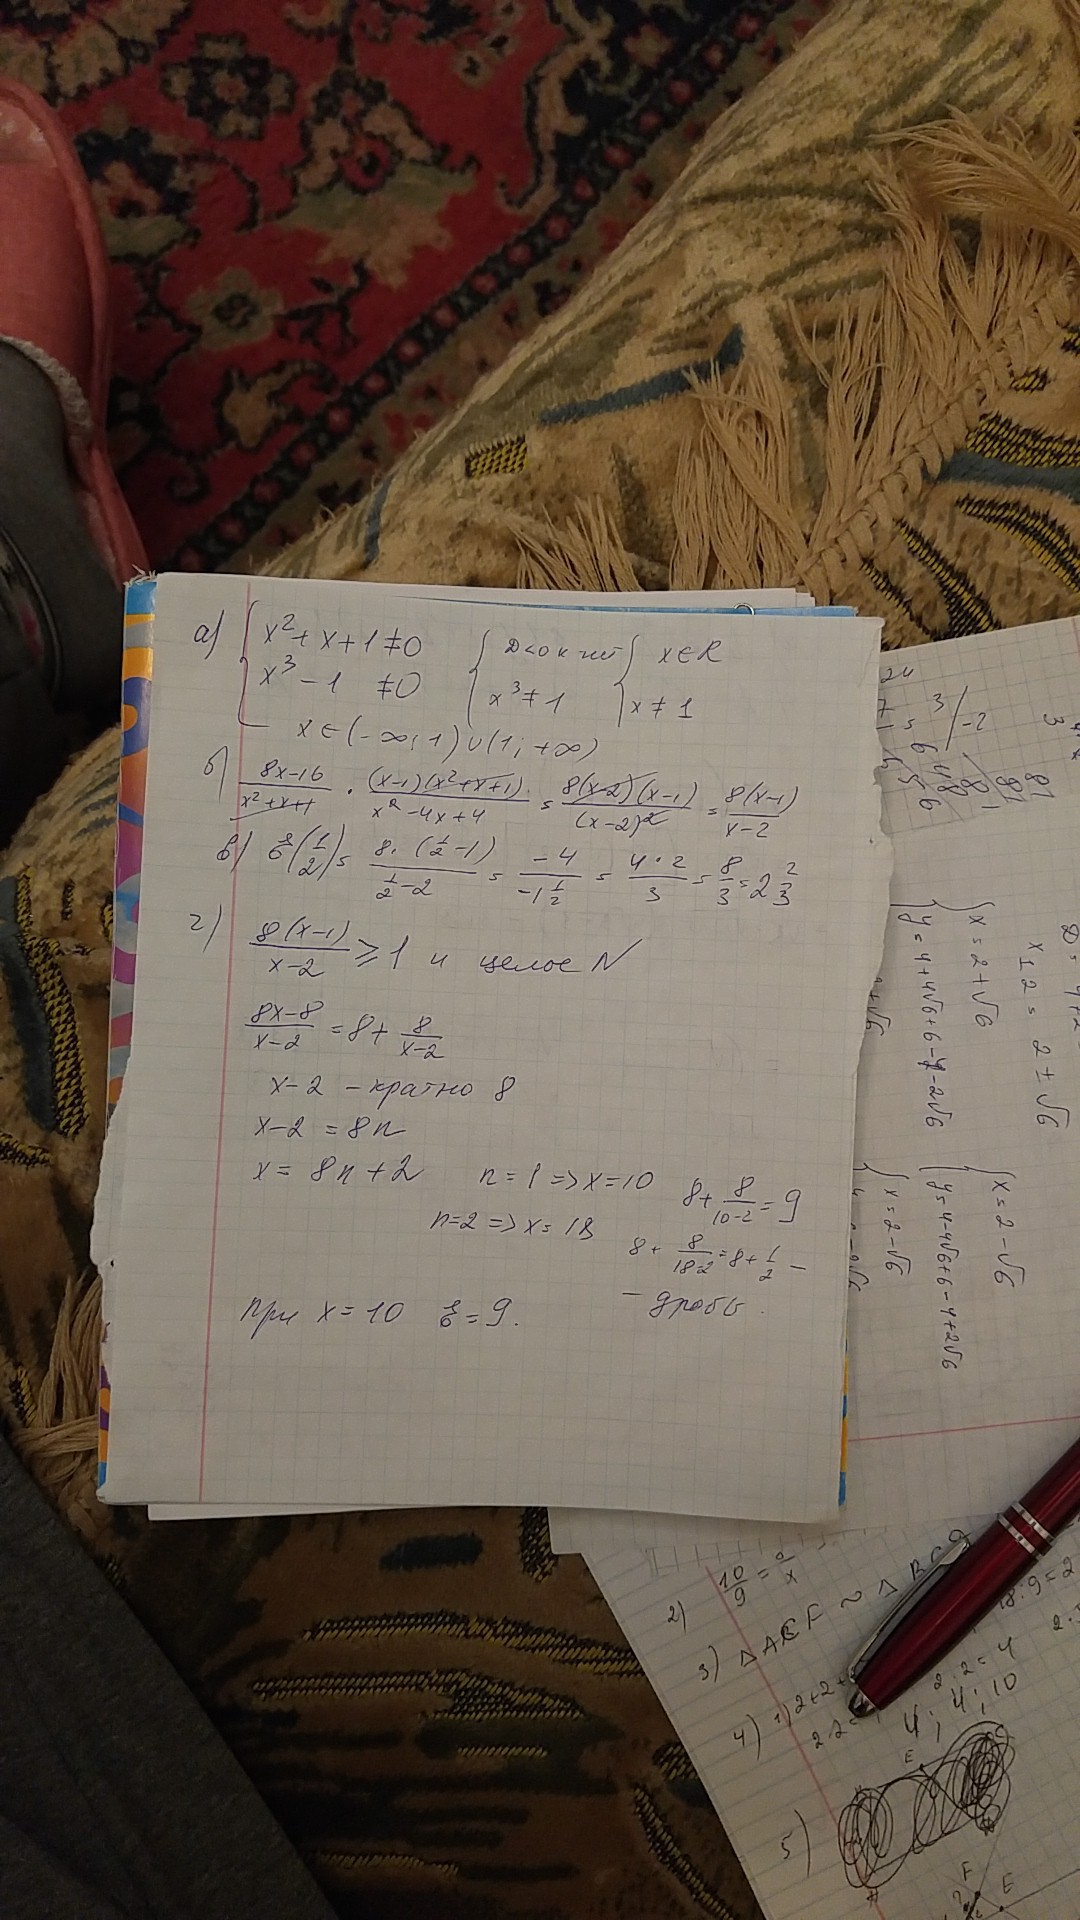 а) { x² + x + 1 ≠ 0 { D<0 к нет { x ∈ R
x³ - 1 ≠ 0 x³ ≠ 1 x ≠ 1
x ∈ (-∞; 1) ∪ (1; +∞)
б) (8x-16)/(x²+x+1) · (x-1)(x²+x+1)/(x²-4x+4) = 8(x-2)(x-1)/(x-2)² = 8(x-1)/(x-2)
в) (1/2) = 8·(1/2-1)/(1/2-2) = -4/(-1 1/2) = 4·2/3 = 8/3 = 2 2/3
г) 8(x-1)/(x-2) ⩾ 1 и целое N
(8x-8)/(x-2) = 8 + 8/(x-2)
x-2 - кратно 8
x-2 = 8n
x = 8n+2 n=1 => x=10 8 + 8/(10-2) = 9
n=2 => x=18 8 + 8/(18-2) = 8 + 1/2 -
- дробь.
при x=10 = 9.
x = 2+√6
y = 4+4√6+6-4-2√6
x - 2 = 2 ± √6
x = 2-√6
y = 4-4√6+6-4+2√6
x = 2-√6
2) 10/9 = /x
3) △ABF ~ △
18:9=2
4) 1) 2+2+
2·2=4
4; 4; 10
5)
E
F E